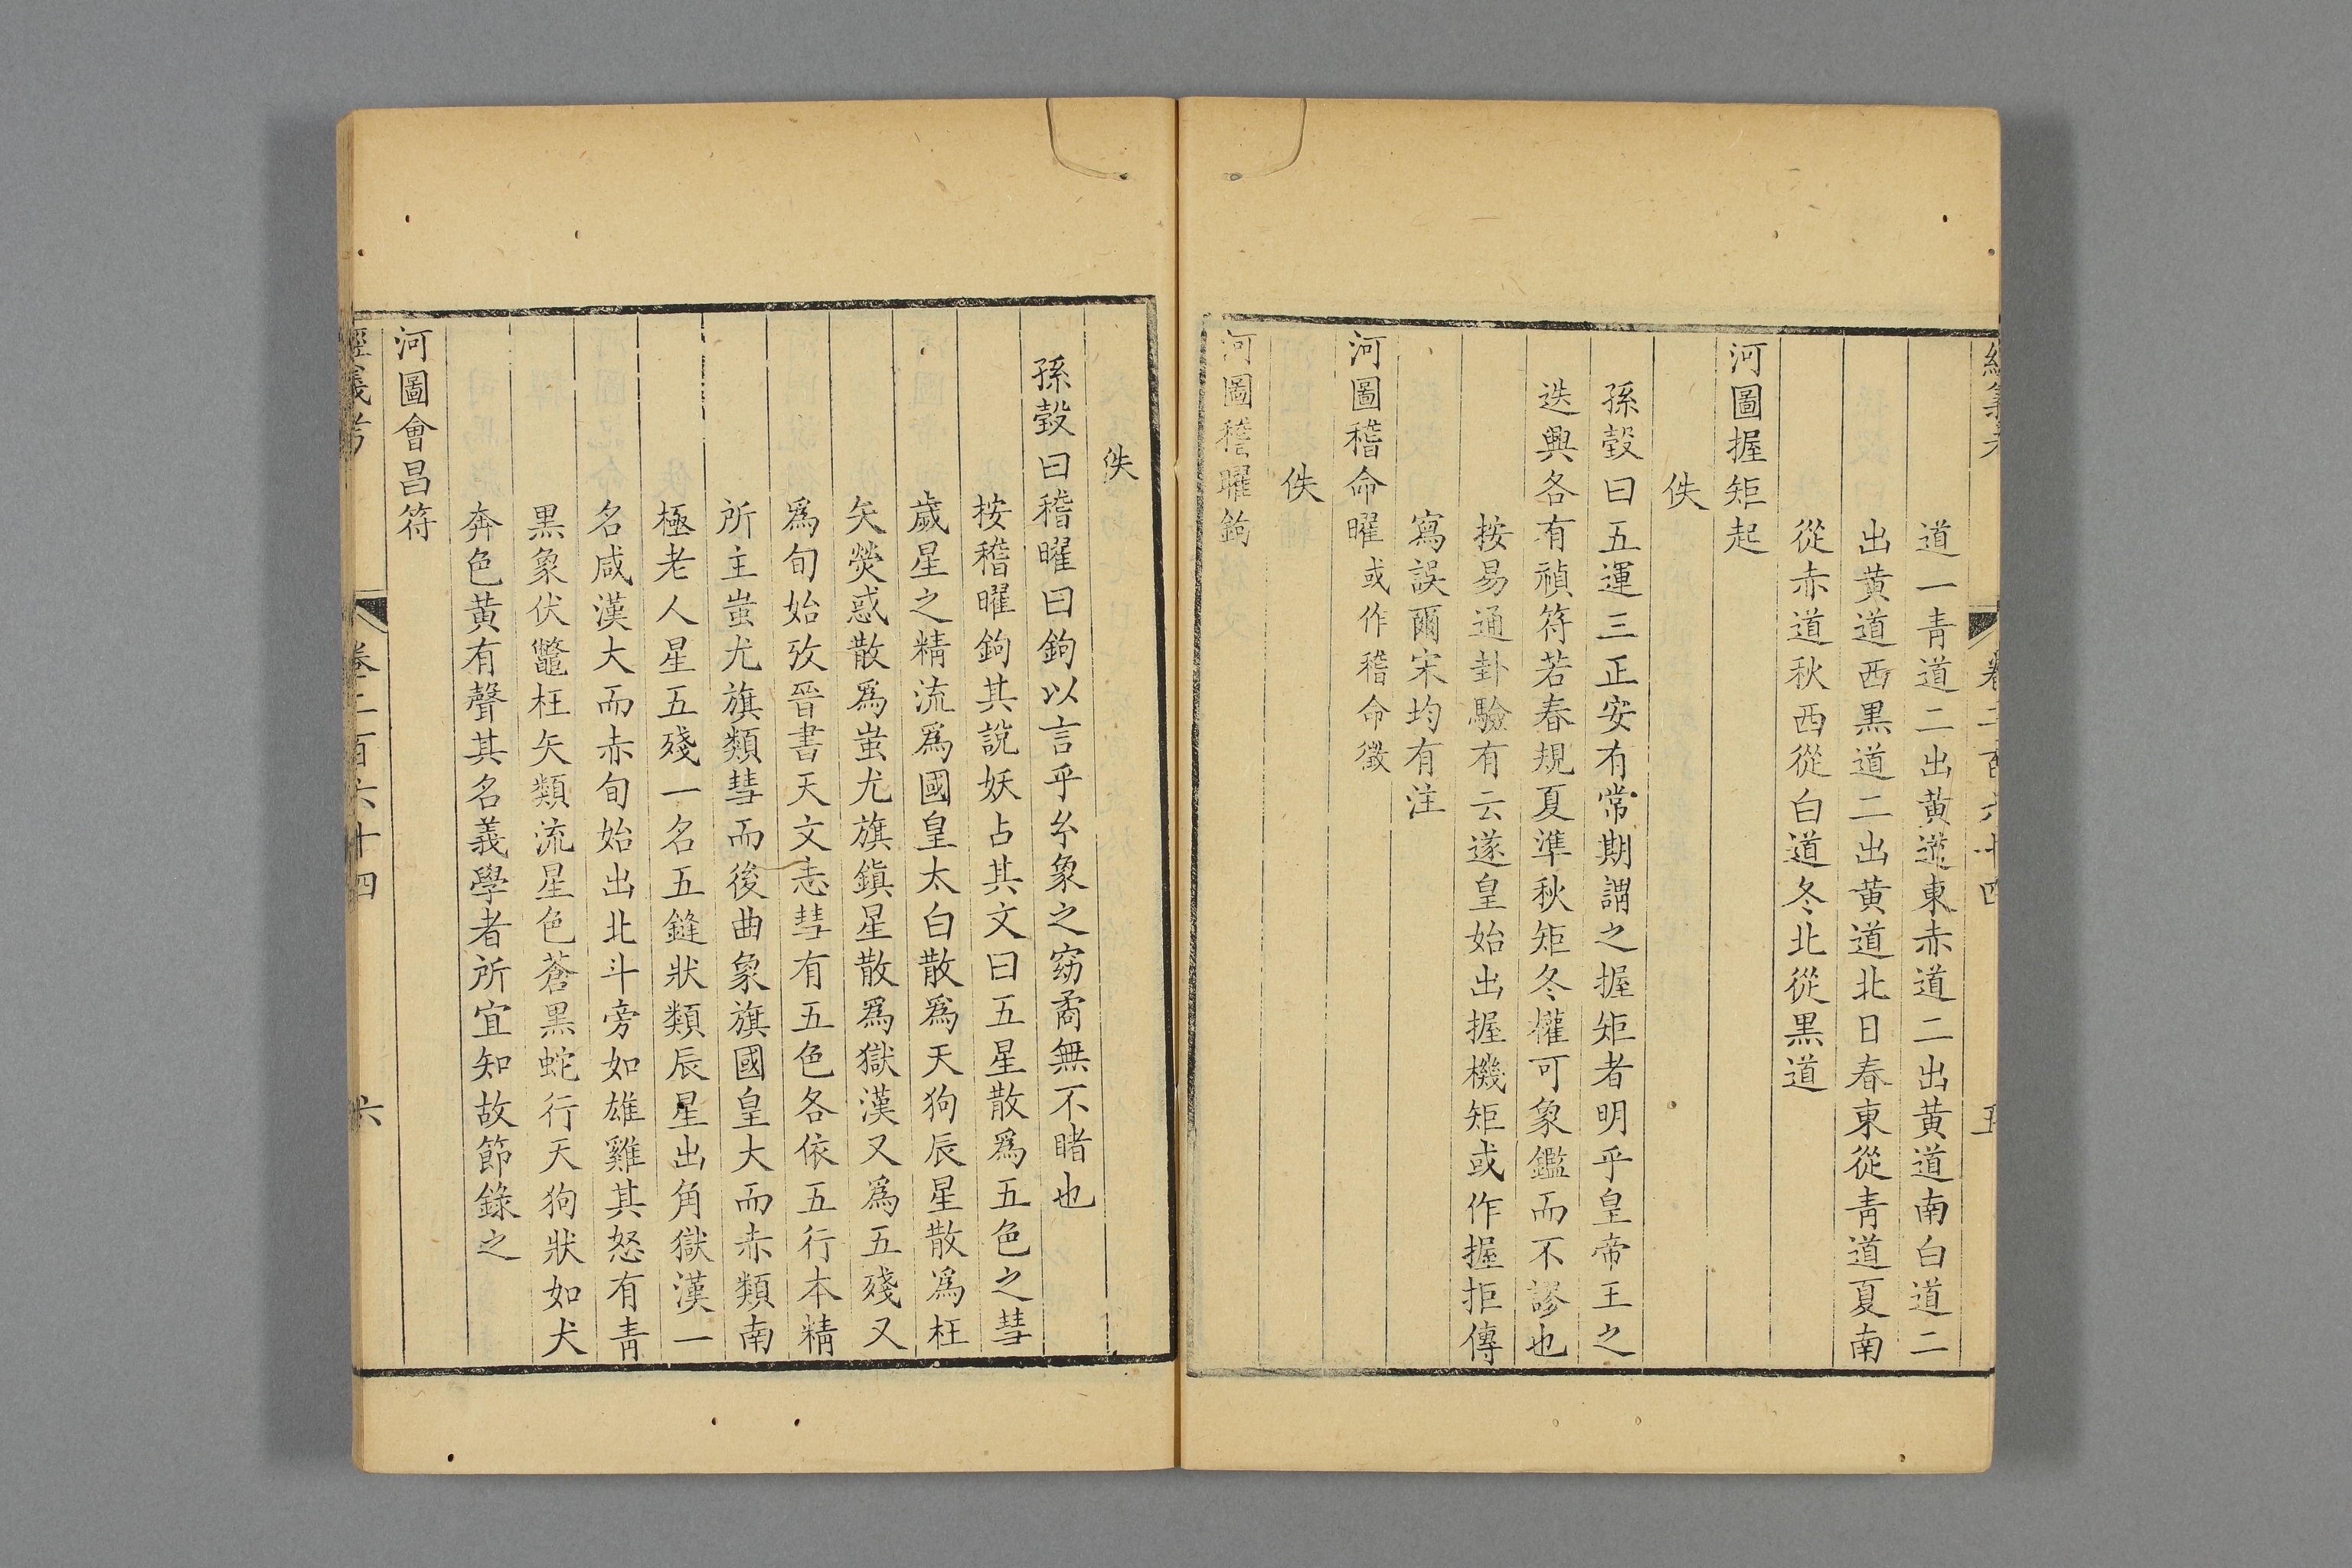 道一青道二出黃道東赤道二出黃道南白道二
出黃道西黑道二出黃道北日春東從青道夏南
從赤道秋西從白道冬北從黑道
河圖握矩起
佚
孫瑴曰五運三正安有常期謂之握矩者明乎皇帝王之
迭興各有禎符若春規夏準秋矩冬權可象鑑而不謬也
按易通卦驗有云遂皇始出握機矩或作握拒傳
寫誤爾宋均有注
河圖稽命曜或作稽命徵
佚
河圖稽曜鉤
佚
孫瑴曰稽曜曰鉤以言乎糸象之窈矞無不睹也
按稽曜鉤其說妖占其文曰五星散爲五色之彗
歲星之精流爲國皇太白散爲天狗辰星散爲枉
矢熒惑散爲蚩尤旗鎮星散爲獄漢又爲五殘又
爲旬始攷晉書天文志彗有五色各依五行本精
所主蚩尤旗類彗而後曲象旗國皇大而赤類南
極老人星五殘一名五鏠狀類辰星出角獄漢一
名咸漢大而赤旬始出北斗旁如雄雞其怒有青
黑象伏鼈枉矢類流星色蒼黑蛇行天狗狀如犬
奔色黃有聲其名義學者所宜知故節錄之
河圖會昌符
經義考
卷二百六十四
六